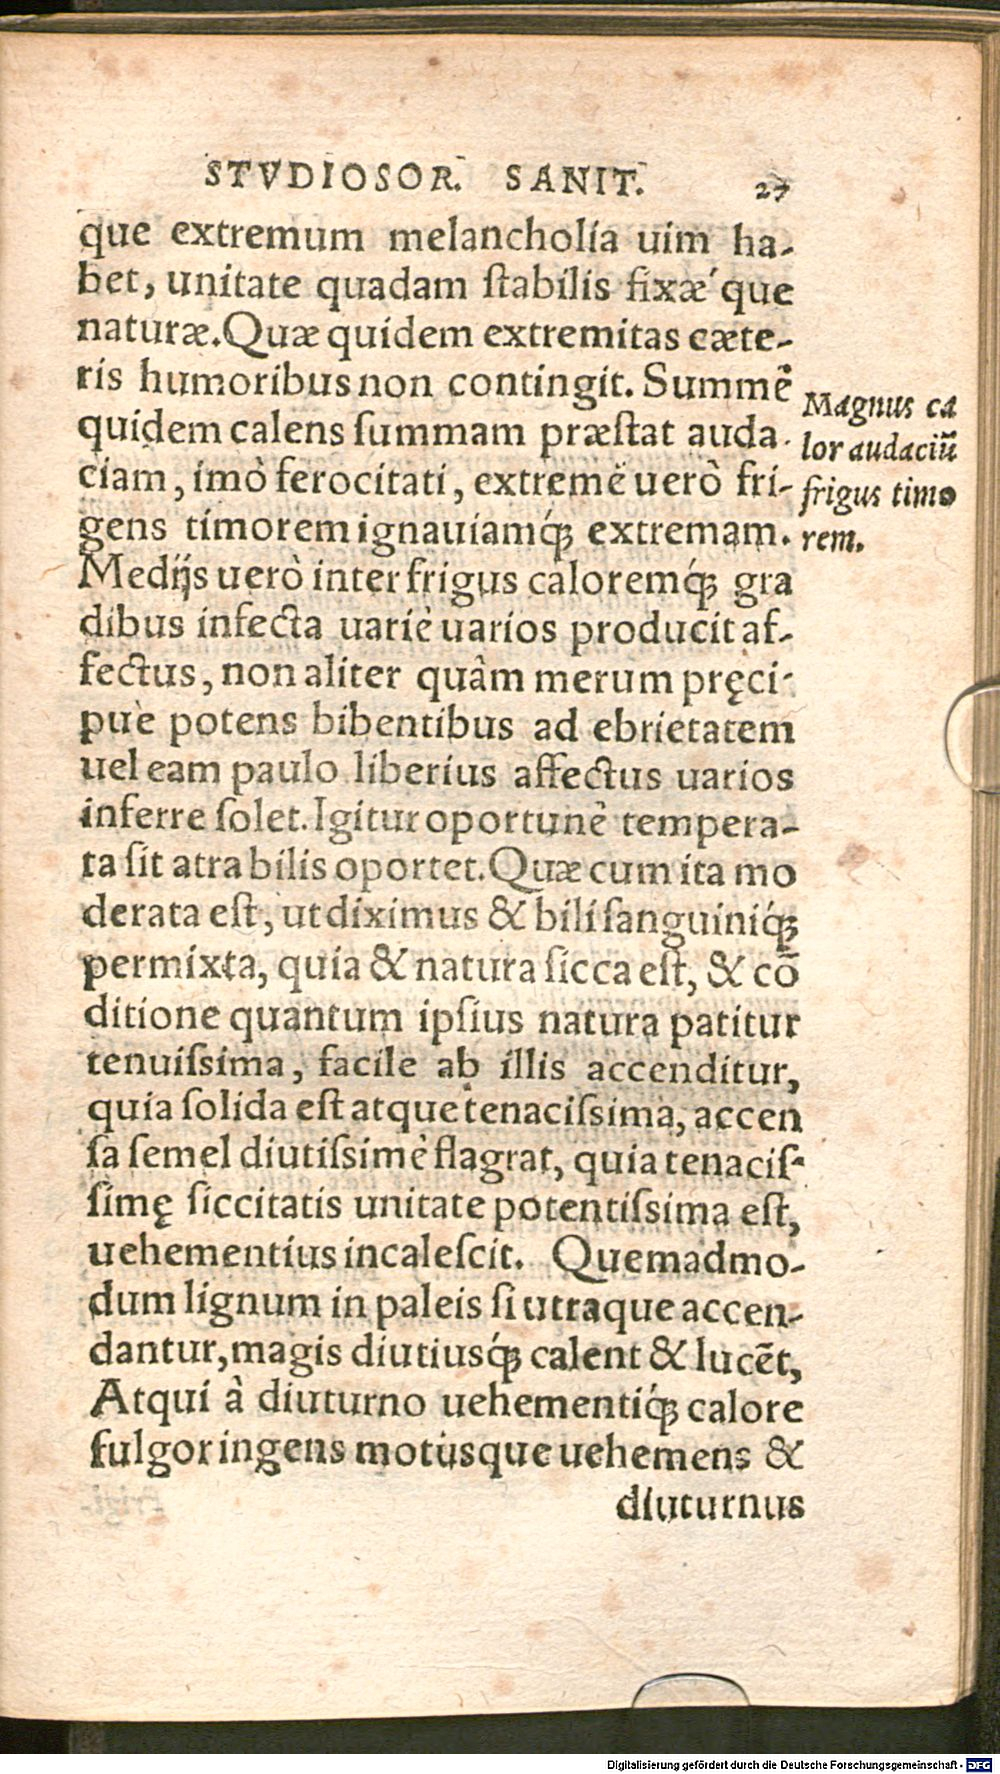 STVDIOSOR. SANIT. 27
que extremum melancholia uim ha-
bet, unitate quadam ſtabilis fixǽque
naturæ. Quæ quidem extremitas cæte-
ris humoribus non contingit. Summè
quidem calens ſummam præſtat auda-
ciam, imò ferocitati, extremè uerò fri-
gens timorem ignauiamq́; extremam.
Medijs uerò inter frigus caloremq́; gra
dibus infecta uariè uarios producit af-
fectus, non aliter quâm merum pręci-
puè potens bibentibus ad ebrietatem
uel eam paulo liberius affectus uarios
inferre ſolet. Igitur oportunè tempera-
ta ſit atra bilis oportet. Quæ cum ita mo
derata eſt, ut diximus & bili ſanguiniq́;
permixta, quia & natura ſicca eſt, & cō
ditione quantum ipſius natura patitur
tenuiſsima, facile ab illis accenditur,
quia ſolida eſt atque tenaciſsima, accen
ſa ſemel diutiſsimè flagrat, quia tenaciſ-
ſimę ſiccitatis unitate potentiſsima eſt,
uehementius incaleſcit. Quemadmo-
dum lignum in paleis ſi utraque accen-
dantur, magis diutiusq́; calent & lucēt,
Atqui à diuturno uehementiq́; calore
fulgor ingens motusque uehemens &
diuturnus
Magnus ca
lor audaciū
frigus timo
rem.
Digitalisierung gefördert durch die Deutsche Forschungsgemeinschaft - DFG